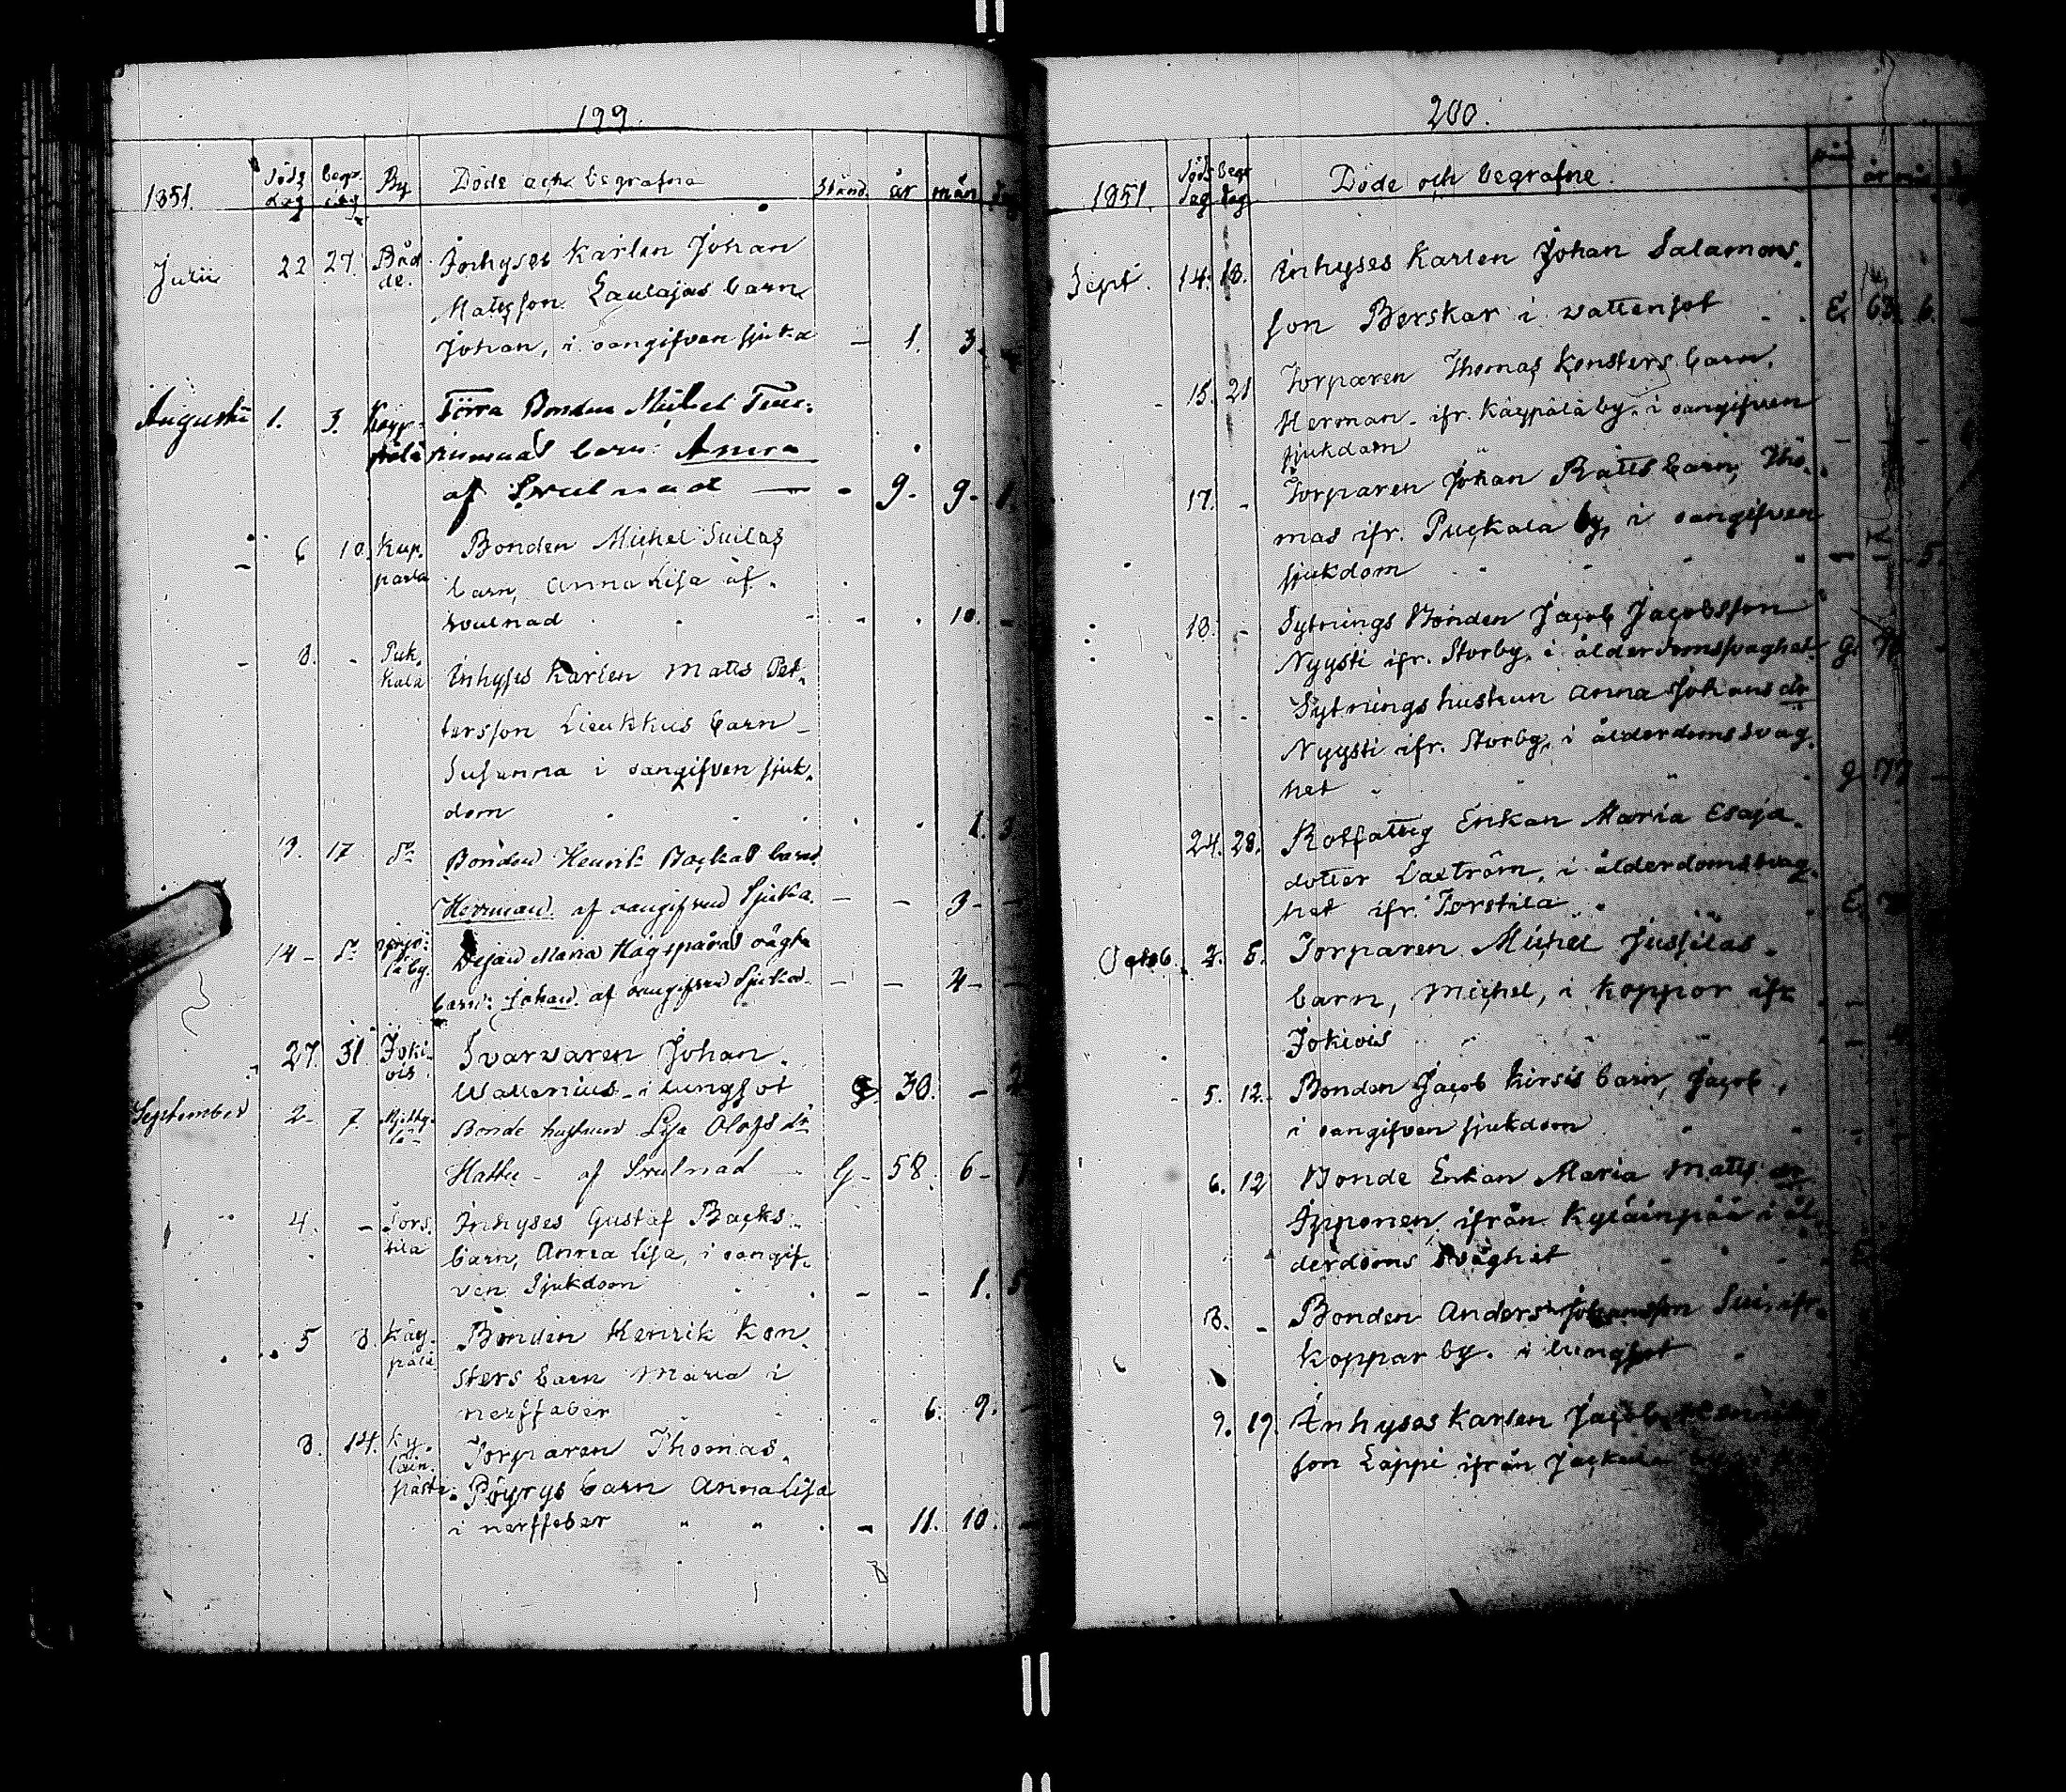 199.
1851.
döds dag
begr. dag
By
Döde och begrafna
Stånd. år mån dag
Julii 22 27. Båd
de.
Inhyses Karlen Johan
Matsson Laulajas barn
Johan, i oangifven sjuka - 1. 3.
Augusti 1. 3. Käyp-
pälä
Förra Bonden Michel
barn: Anna
af Svulnad — - 9- 9- 1.
- 6 10. Kup.
parla
Bonden Michel Suilas
barn, Anna Lisa af
svulnad . . - - . 10. -
- 8. - Puk.
kala
Inhyses Karlen Matts Pet.
tersson Lieukkus barn
Susanna i oangifven sjuk.
dom . . . . 1. 3
13. 17 do
Bonden Henrik Backas barn
Herrman. af oangifven Sjuka. - - 3- -
14- do
laby.
Maria Hägspäras oägta
barn: Johan. af oangifven Sjukd. - - 4- -
27. 31. Joki-
ois.
Svarvaren Johan
Wallenius i lungsot G 30. - 2
September 2- 7.
Bonde hustrun Lisa Olofs dr
Hattu - af Svulnad G- 58. 6- 7
4. - Tors.
tila
Inhyses Gustaf Backs
barn, Anna Lisa, i oangif.
ven Sjukdom . . - - 1. 5
5 8. Käy.
pälä
Bonden Henrik Kon
sters barn Maria i
nerffeber . . 6. 9. -
8. 14. Ky.
läin.
päste.
Torparen Thomas
Pöyrys barn Anna Lisa
i nerffeber " " . - 11. 10. -
200.
1851.
döds dag
begr dag
Döde och begrafne
år mån
Sept. 14. 18. Inhyses Karlen Johan Salamons.
son Berskar i vattensot - . E. 63. 6.
- 15. 21 Torparen Thomas Konsters barn.
Herman. ifr. Käypälä by. i oangifven
sjukdom " - - -
17. - Torparen Johan Rätts barn, Tho.
mas ifr. Puckala by, i oangifven
sjukdom . . . . - - 5.
18. - Sytnings Bonden Jacob Jacobsson
Nyysti ifr. Storby. i ålderdomssvaghet. g.
- - Sytnings hustrun Anna Johans dr
Nyysti ifr. Storby, i ålderdoms svag.
het . " . g 77 -
24. 28. Rotfattig Enkan Maria Esaja.
dotter Laxtröm, i ålderdoms svag.
het ifr. Torstila . . E.
Octob. 2. 5. Torparen Michel Jussilas
barn, Michel, i koppor ifr
Jokiois . . . - 4
- 5. 12. Bonden Jacob Kirsis barn, Jacob,
i oangifven sjukdom . . - -
6. 12 Bonde Enkan Maria Matts dr
Ipponen, ifrån Kyläinpää i ål.
derdoms svaghet . . . E.
8. - Bonden Anders Johansson Sui. ifr.
Koppar by. i lungsot .
9. 19. Inhyses Karlen Jacob
son Lappi ifrån Jackala